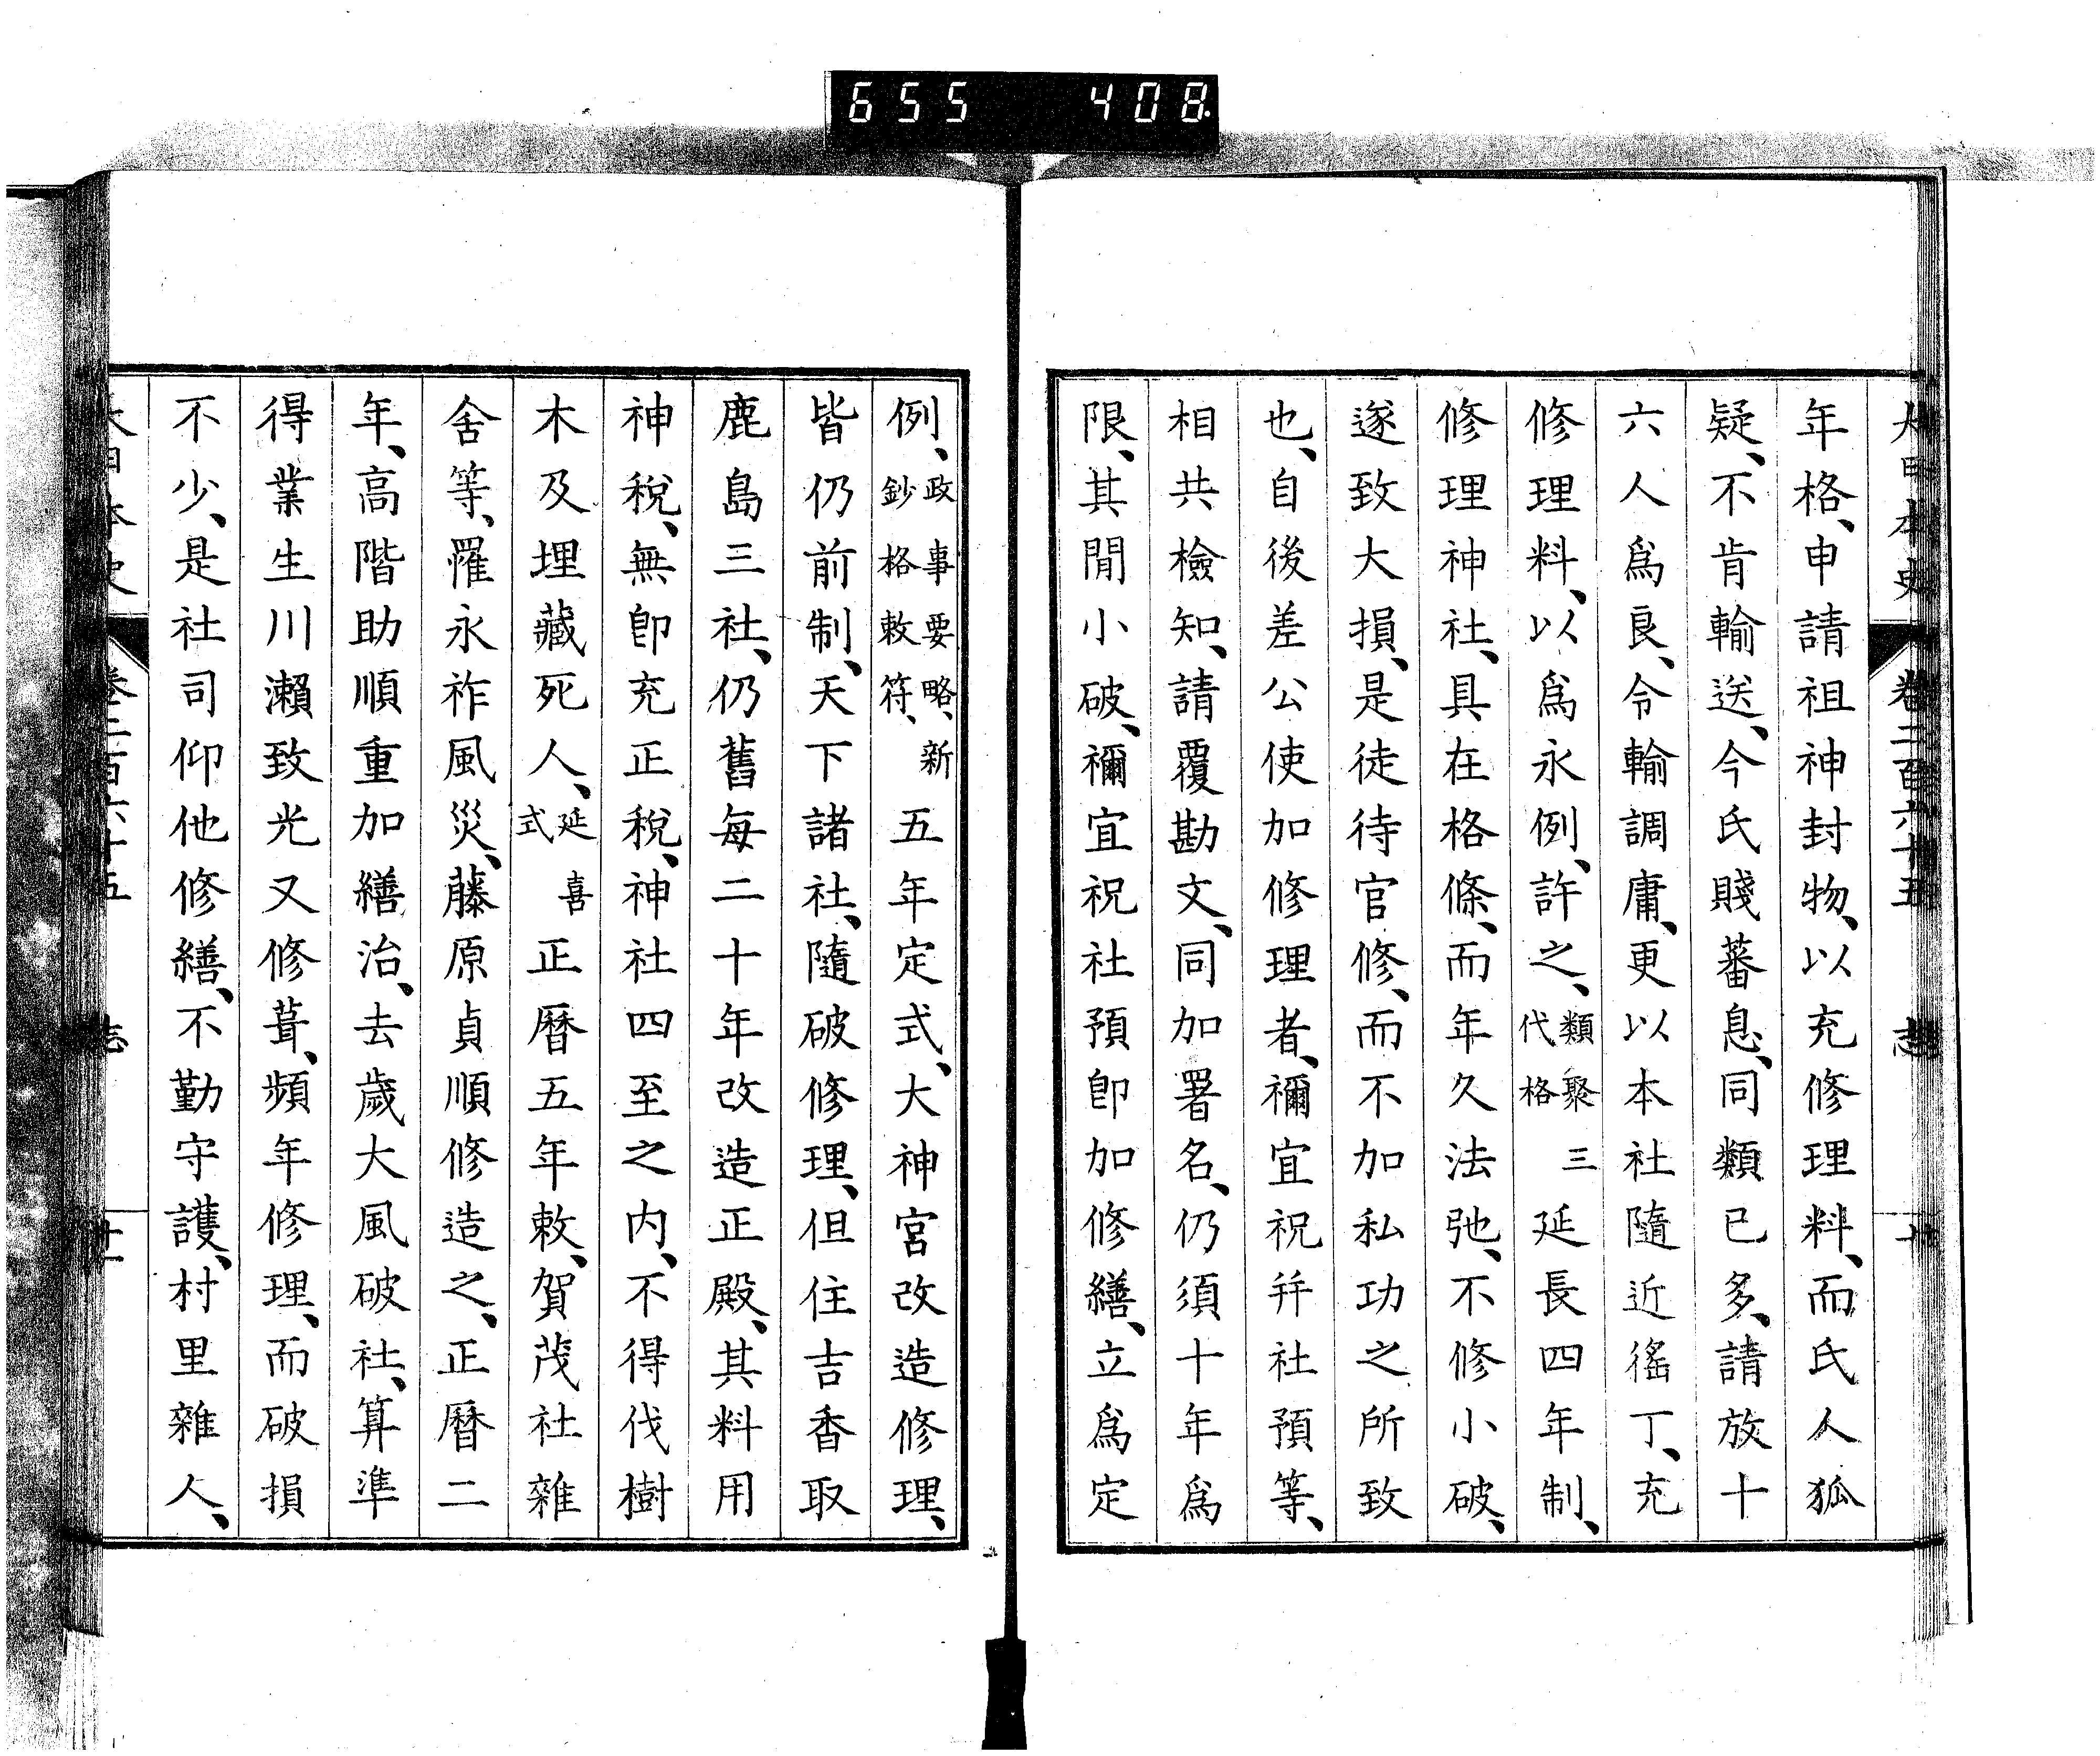 655 408
大日本史 卷二百六十五 志 十
年格、申請祖神封物、以充修理料、而氏人狐
疑、不肯輸送、今氏賤蕃息、同類已多、請放十
六人爲良、令輸調庸、更以本社隨近徭丁、充
修理料、以爲永例、許之、類聚三代格 延長四年制、
修理神社、具在格條、而年久法弛、不修小破、
遂致大損、是徒待官修、而不加私功之所致
也、自後差公使加修理者、禰宜祝幷社預等、
相共檢知、請覆勘文、同加署名、仍須十年爲
限、其閒小破、禰宜祝社預卽加修繕、立爲定
例、政事要略、新鈔格敕符、 五年定式、大神宮改造修理、
皆仍前制、天下諸社、隨破修理、但住吉香取
鹿島三社、仍舊每二十年改造正殿、其料用
神稅、無卽充正稅、神社四至之內、不得伐樹
木及埋藏死人、延喜式 正曆五年敕、賀茂社雜
舍等、罹永祚風災、藤原貞順修造之、正曆二
年、高階助順重加繕治、去歲大風破社、算準
得業生川瀨致光又修葺、頻年修理、而破損
不少、是社司仰他修繕、不勤守護、村里雜人、
大日本史 卷二百六十五 志 十一